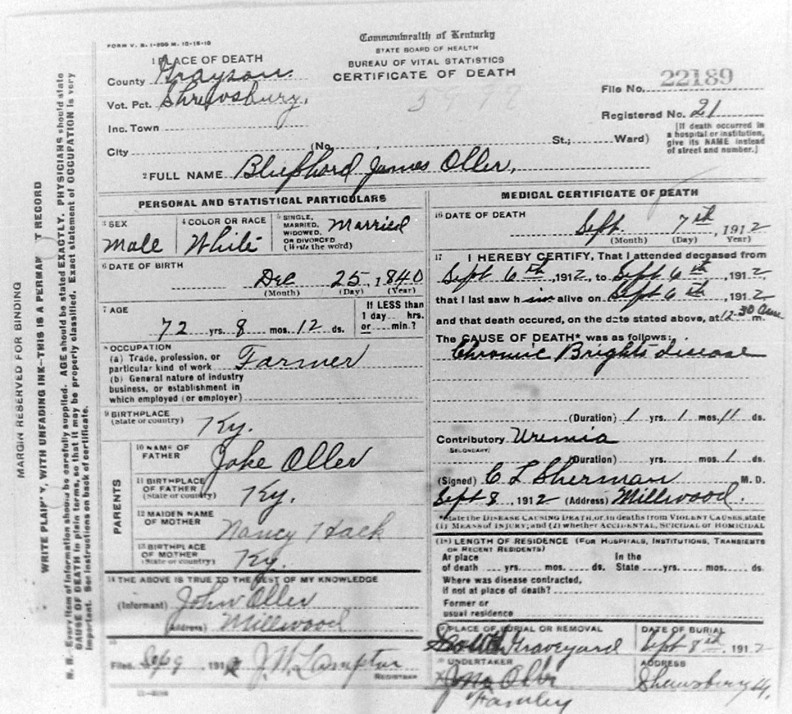 FORM V. S. 1-200 M. 12-15-10
Commonwealth of Kentucky
STATE BOARD OF HEALTH
BUREAU OF VITAL STATISTICS
CERTIFICATE OF DEATH
1 PLACE OF DEATH
County Grayson.
Vot. Pct. Shrewsbury,
Inc. Town
City
(No.
St.;
Ward)
File No. 22189
Registered No. 21
(If death occurred in
a hospital or institution,
give its NAME instead
of street and number.)
2 FULL NAME Bluphord James Oller,
PERSONAL AND STATISTICAL PARTICULARS
3 SEX
Male
4 COLOR OR RACE
White
5 SINGLE,
MARRIED,
WIDOWED,
OR DIVORCED
(Write the word)
Married
6 DATE OF BIRTH
Dec 25, 1840
(Month) (Day) (Year)
7 AGE
72 yrs. 8 mos. 12 ds.
If LESS than
1 day hrs.
or min.?
8 OCCUPATION
(a) Trade, profession, or
particular kind of work Farmer
(b) General nature of industry
business, or establishment in
which employed (or employer)
9 BIRTHPLACE
(State or country) Ky.
PARENTS
10 NAME OF
FATHER Jake Oller
11 BIRTHPLACE
OF FATHER
(State or country) Ky.
12 MAIDEN NAME
OF MOTHER Nancy Hack
13 BIRTHPLACE
OF MOTHER
(State or country) Ky.
14 THE ABOVE IS TRUE TO THE BEST OF MY KNOWLEDGE
(Informant) John Oller
(Address) Millwood
15
Filed Sep 9 1912 J. W. Lampton
REGISTRAR
MEDICAL CERTIFICATE OF DEATH
16 DATE OF DEATH
Sept. 7th, 1912
(Month) (Day) (Year)
17 I HEREBY CERTIFY, That I attended deceased from
Sept 6th, 1912, to Sept 6th, 1912
that I last saw him alive on Sept 6th, 1912
and that death occured, on the date stated above, at 12.30 a.m.
The CAUSE OF DEATH* was as follows:
Chronic Brights disease
(Duration) 1 yrs. 1 mos. 11 ds.
Contributory Uremia
SECONDARY
(Duration) yrs. mos. 1 ds.
(Signed) C L Sherman M. D.
Sept 8, 1912 (Address) Millwood.
*State the DISEASE CAUSING DEATH, or, in deaths from VIOLENT CAUSES, state
(1) MEANS OF INJURY; and (2) whether ACCIDENTAL, SUICIDAL or HOMICIDAL
18 LENGTH OF RESIDENCE (FOR HOSPITALS, INSTITUTIONS, TRANSIENTS
OR RECENT RESIDENTS)
At place
of death yrs. mos. ds.
In the
State yrs. mos. ds.
Where was disease contracted,
if not at place of death?
Former or
usual residence
19 PLACE OF BURIAL OR REMOVAL
Graveyard
DATE OF BURIAL
Sept 8th, 1912
20 UNDERTAKER
Oller
Family
ADDRESS
Shrewsbery Ky.
MARGIN RESERVED FOR BINDING
WRITE PLAINLY, WITH UNFADING INK—THIS IS A PERMANENT RECORD
N. B. Every item of information should be carefully supplied. AGE should be stated EXACTLY. PHYSICIANS should state
CAUSE OF DEATH in plain terms, so that it may be properly classified. Exact statement of OCCUPATION is very
important. See instructions on back of certificate.